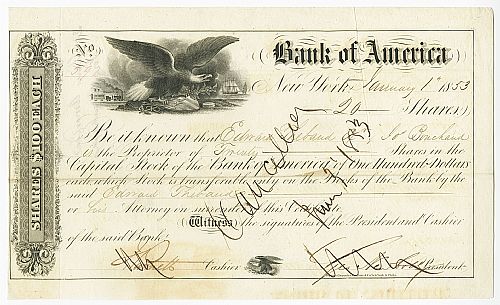 No.
Bank of America
New York January 1st 1853
20 Shares
SHARES $100 EACH
Be it known that Edward
is the Proprietor of Twenty Shares in the
Capital Stock of the Bank of America, of One Hundred Dollars
each, which Stock is transferable only on the Books of the Bank by the
said
or his Attorney on surrender of this Certificate
Witness the signatures of the President and Cashier
of the said Bank.
Cashier
President
Cancelled
1853